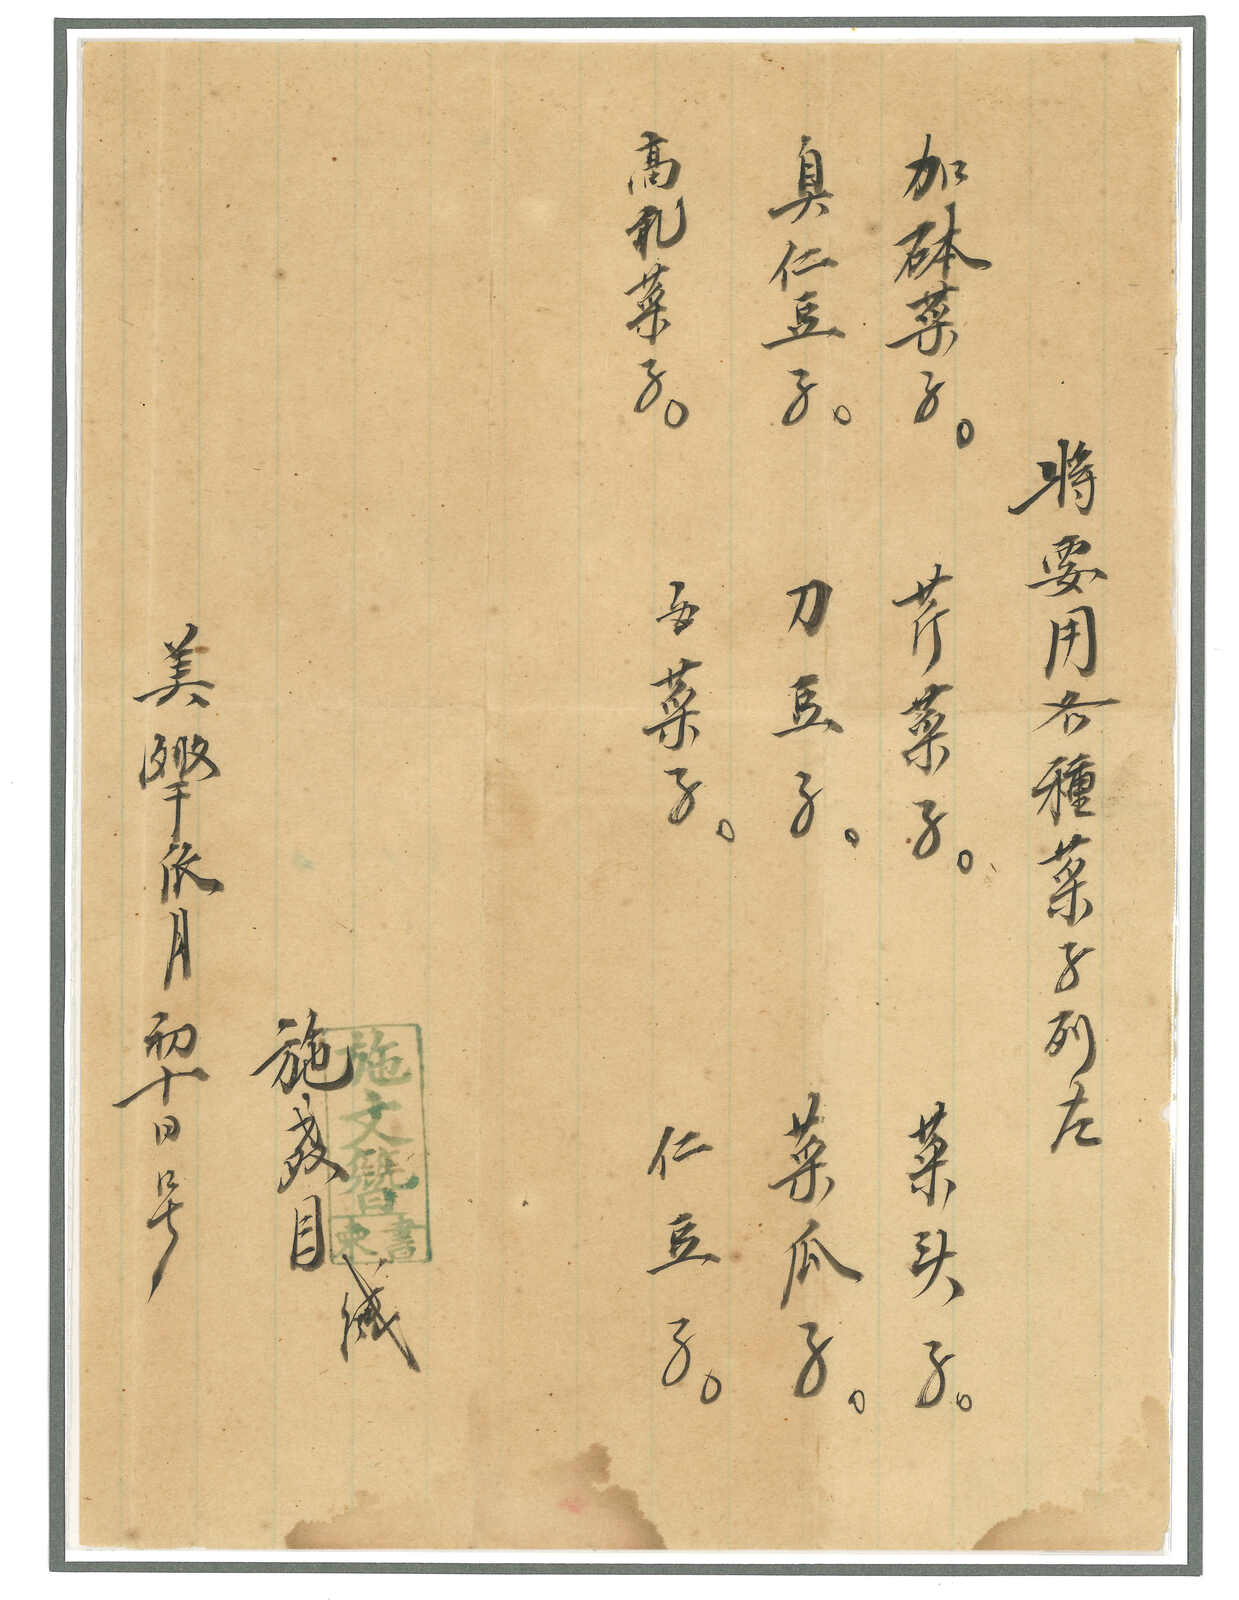 將要用各種菜子列左
加砵菜子。 芹菜子。 菜头子。
臭仁豆子。 刀豆子。 菜瓜子。
高乳菜子。 菜子。 仁豆子。
施 目 緘
施文簪
書柬
美 月初十日号